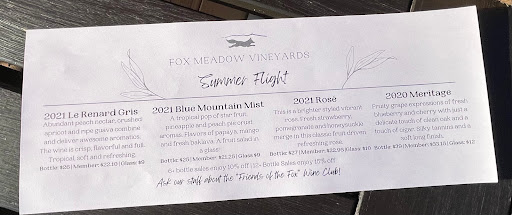 FOX MEADOW VINEYARDS
Summer Flight
2021 Le Renard Gris
Abundant peach nectar, crushed
apricot and ripe guava combine
and deliver awesome aromatics.
The wine is crisp, flavorful and full.
Tropical, soft and refreshing.
Bottle: $26 | Member: $22.10 | Glass: $9
2021 Blue Mountain Mist
A tropical pop of star fruit,
pineapple and peach pie crust
aromas. Flavors of papaya, mango
and fresh baklava. A fruit salad in a
glass!
Bottle: $25 | Member: $21.25 | Glass: $9
2021 Rosé
This is a brighter styled vibrant
rosé. Fresh strawberry,
pomegranate and honeysuckle
merge in this classic fruit driven
refreshing rose.
Bottle: $27 | Member: $22.95 | Glass: $10
2020 Meritage
Fruity grape expressions of fresh
blueberry and cherry with just a
delicate touch of clean oak and a
touch of cigar. Silky tannins and a
soft long finish.
Bottle: $39 | Member: $33.15 | Glass: $12
6+ bottle sales enjoy 10% off 12+ Bottle Sales enjoy 15% off
Ask our staff about the "Friends of the Fox" Wine Club!